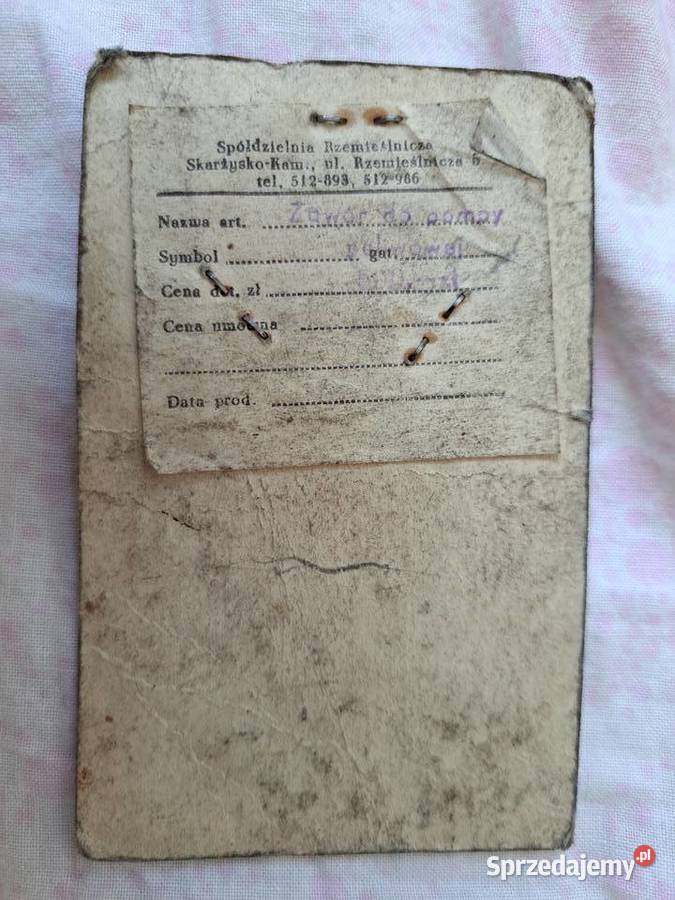 Spółdzielnia Rzemieślnicza
Skarżysko-Kam., ul. Rzemieślnicza 5
tel. 512-893, 512-966
Nazwa art. Zawór do pompy
Symbol gat. paliwowej
Cena det. zł
Cena umowna
Data prod.
Sprzedajemy.pl